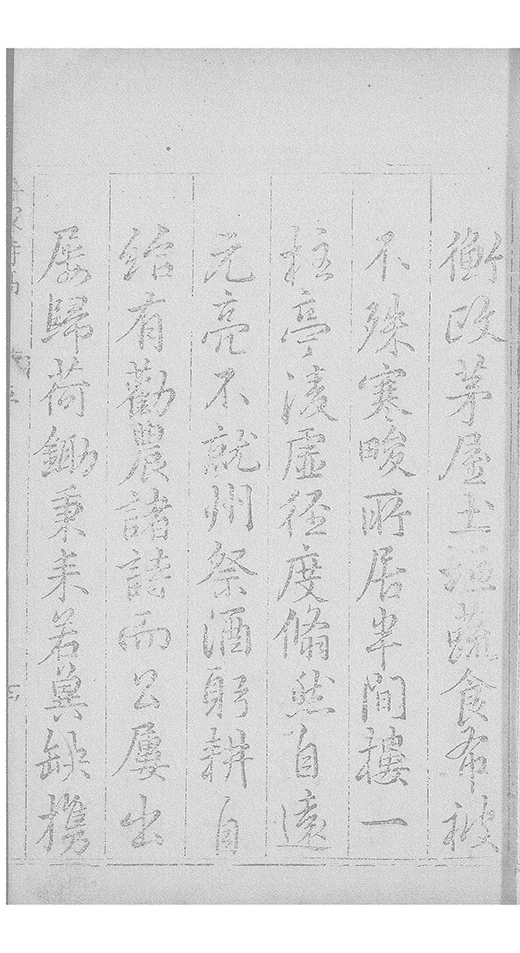 衡改茅屋土垣蔬食布被
不殊寒畯所居半間樓一
柱亭淩虛徑度翛然自遠
元亮不就州祭酒躬耕自
給有勸農諸詩而公屢出
屢歸荷鋤秉耒若冀缺攜